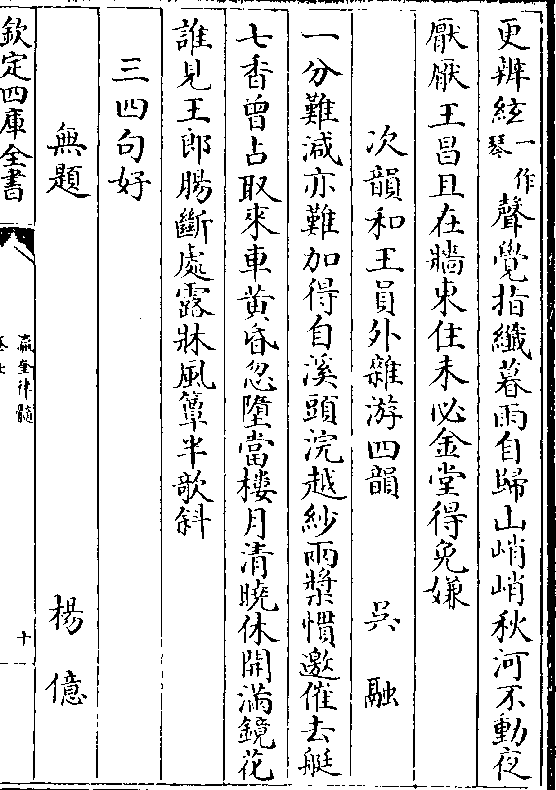 更辨絃一作琴聲覺指纖暮雨自歸山峭峭秋河不動夜
厭厭王昌且在牆東住未必金堂得免嫌
次韻和王員外雜游四韻 吳融
一分難減亦難加得自溪頭浣越紗兩槳慣邀催去艇
七香曾占取來車黃昏忽墮當樓月清曉休開滿鏡花
誰見王郎腸斷處露牀風簟半欹斜
三四句好
無題 楊億
欽定四庫全書
瀛奎律髓
十